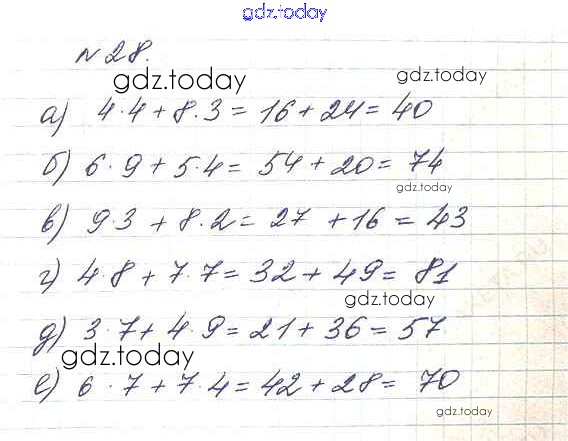 gdz.today
№28.
gdz.today
gdz.today
а) 4·4+8·3=16+24=40
б) 6·9+5·4=54+20=74
gdz.today
в) 9·3+8·2=27+16=43
г) 4·8+7·7=32+49=81
gdz.today
д) 3·7+4·9=21+36=57
gdz.today
е) 6·7+7·4=42+28=70
gdz.today